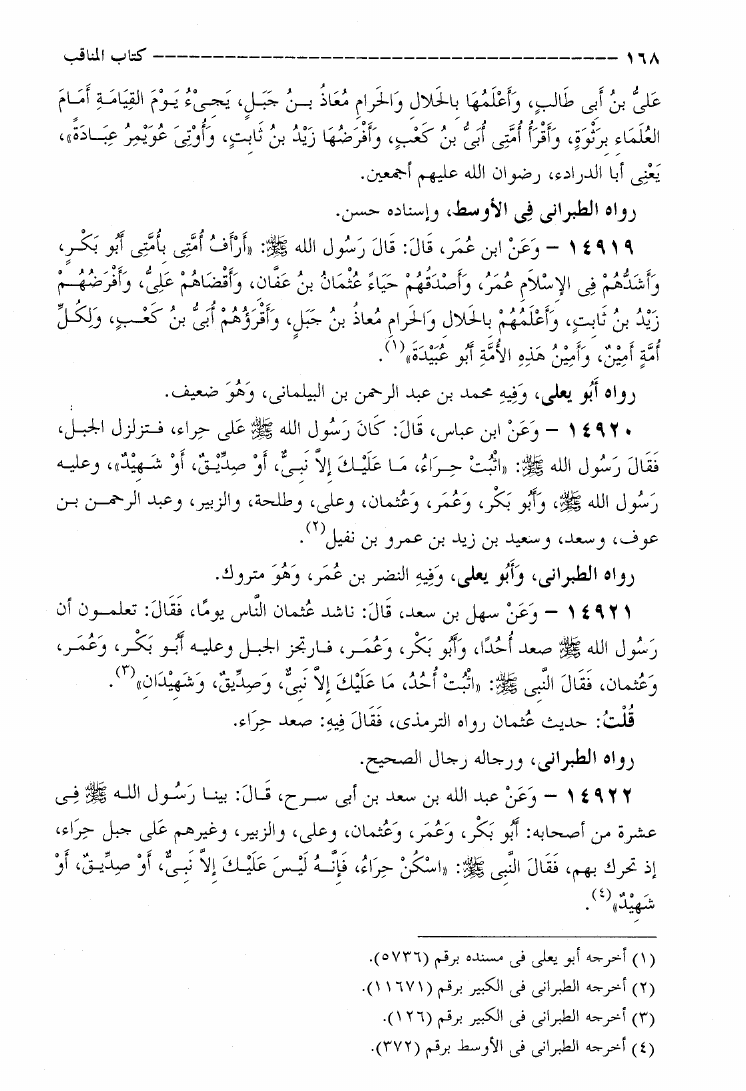 ١٦٨ ---------------------------------------- كتاب المناقب
عَلىُّ بنُ أبى طَالبٍ، وَأَعْلَمُهَا بِالحَلال وَالحَرام مُعَاذُ بــنُ جَبَـلٍ، يَجـىْءُ يَـوْمَ القِيَامَـةِ أَمَـامَ
العُلَمَاء بِرَتْوَةٍ، وَأَقْرَأُ أُمَّتِى أُبَىُّ بنُ كَعْبٍ، وَأَفْرَضُهَا زَيْدُ بنُ ثَابتٍ، وَأُوْتِىَ عُوَيْمِرُ عِبَـادَةً»،
يَعْنِى أبا الدرداء، رضوان الله عليهم أجمعين.
رواه الطبرانى فِى الأوسط، وإسناده حسن.
١٤٩١٩ – وَعَنْ ابن عُمَر، قَالَ: قَالَ رَسُول الله ﷺ: «أَرْأَفُ أُمَّتِى بأُمَّتِى أَبُو بَكْـرٍ،
وَأَشَدُّهُمْ فِى الإِسْلَامِ عُمَرُ، وَأَصْدَقُهُمْ حَيَاءً عُثْمَانُ بنُ عَفَّان، وَأَقْضَاهُمْ عَلِىُّ، وَأَفْرَضُهُــمْ
زَيْدُ بنُ ثَابتٍ، وَأَعْلَمُهُمْ بالحَلال وَالحَرامِ مُعاذُ بن جَبَلٍ، وَأَقْرَؤُهُمْ أُبَىُّ بنُ كَعْـبٍ، وَلِكُـلِّ
أُمَّةٍ أَمِيْنٌ، وَأَمِيْنُ هَذِهِ الأُمَّةِ أَبُو عُبَيْدَةَ»(١).
رواه أَبُو يعلى، وَفِيهِ محمد بن عبد الرحمن بن البيلمانى، وَهُوَ ضعيف.
١٤٩٢٠ – وَعَنْ ابن عباس، قَالَ: كَانَ رَسُول الله ﷺ عَلى حِراء، فـتزلزل الجبـل،
فَقَالَ رَسُول الله ﷺ: «اثْبُتْ حِـرَاءُ، مَـا عَلَيْـكَ إلاَّ نَبىٌّ، أَوْ صِدِّيْـقٌ، أَوْ شَـهِيْدٌ»، وعليـه
رَسُول الله ﷺ، وَأَبُو بَكْر، وَعُمَر، وَعُثمان، وعلى، وطلحة، والزبير، وعبد الرحمــن بـن
عوف، وسعد، وسعيد بن زيد بن عمرو بن نفيل(٢).
رواه الطبرانى، وَأَبُو يعلى، وَفِيهِ النضر بن عُمَر، وَهُوَ متروك.
١٤٩٢١ – وَعَنْ سهل بن سعد، قَالَ: ناشد عُثمان النَّاس يومًا، فَقَالَ: تعلمــون أن
رَسُول الله ﷺ صعد أُحُدًا، وَأَبُو بَكْر، وَعُمَــر، فـارتجز الجبـل وعليـه أَبُـو بَكْـر، وَعُمَـر،
وَعُثمان، فَقَالَ النَّبى ﷺ: «اثْبُتْ أُحُدُ، مَا عَلَيْكَ إلاَّ نَبىٌّ، وَصِدِّيقٌ، وَشَهِيْدَانِ»(٣).
قُلْتُ: حديث عُثمان رواه الترمذى، فَقَالَ فِيهِ: صعد حِرَاء.
رواه الطبرانى، ورجاله رجال الصحيح.
١٤٩٢٢ – وَعَنْ عبد الله بن سعد بن أبى سـرح، قَـالَ: بينـا رَسُـول اللـه ﷺ فِـى
عشرة من أصحابه: أَبُو بَكْر، وَعُمَر، وَعُثمان، وعلى، والزبير، وغيرهم عَلى جبل حِرَاء،
إذ تحرك بهم، فَقَالَ النَّبى ﷺ: «اسْكُنْ حِرَاءُ، فَإِنَّـهُ لَيْـسَ عَلَيْـكَ إلاَّ نَبِـىٌّ، أَوْ صِدِّيـقٌ، أَوْ
شَهِيْدٌ»(٤).
(١) أخرجه أبو يعلى فى مسنده برقم (٥٧٣٦).
(٢) أخرجه الطبرانى فى الكبير برقم (١١٦٧١).
(٣) أخرجه الطبرانى فى الكبير برقم (١٢٦).
(٤) أخرجه الطبرانى فى الأوسط برقم (٣٧٢).